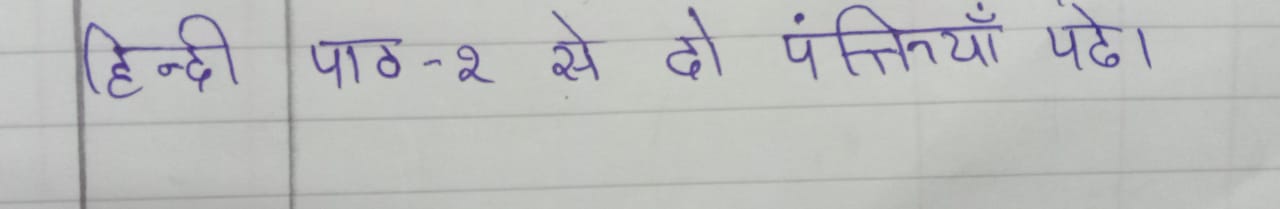 हिन्दी पाठ-२ से दो पंक्तियाँ पढे।